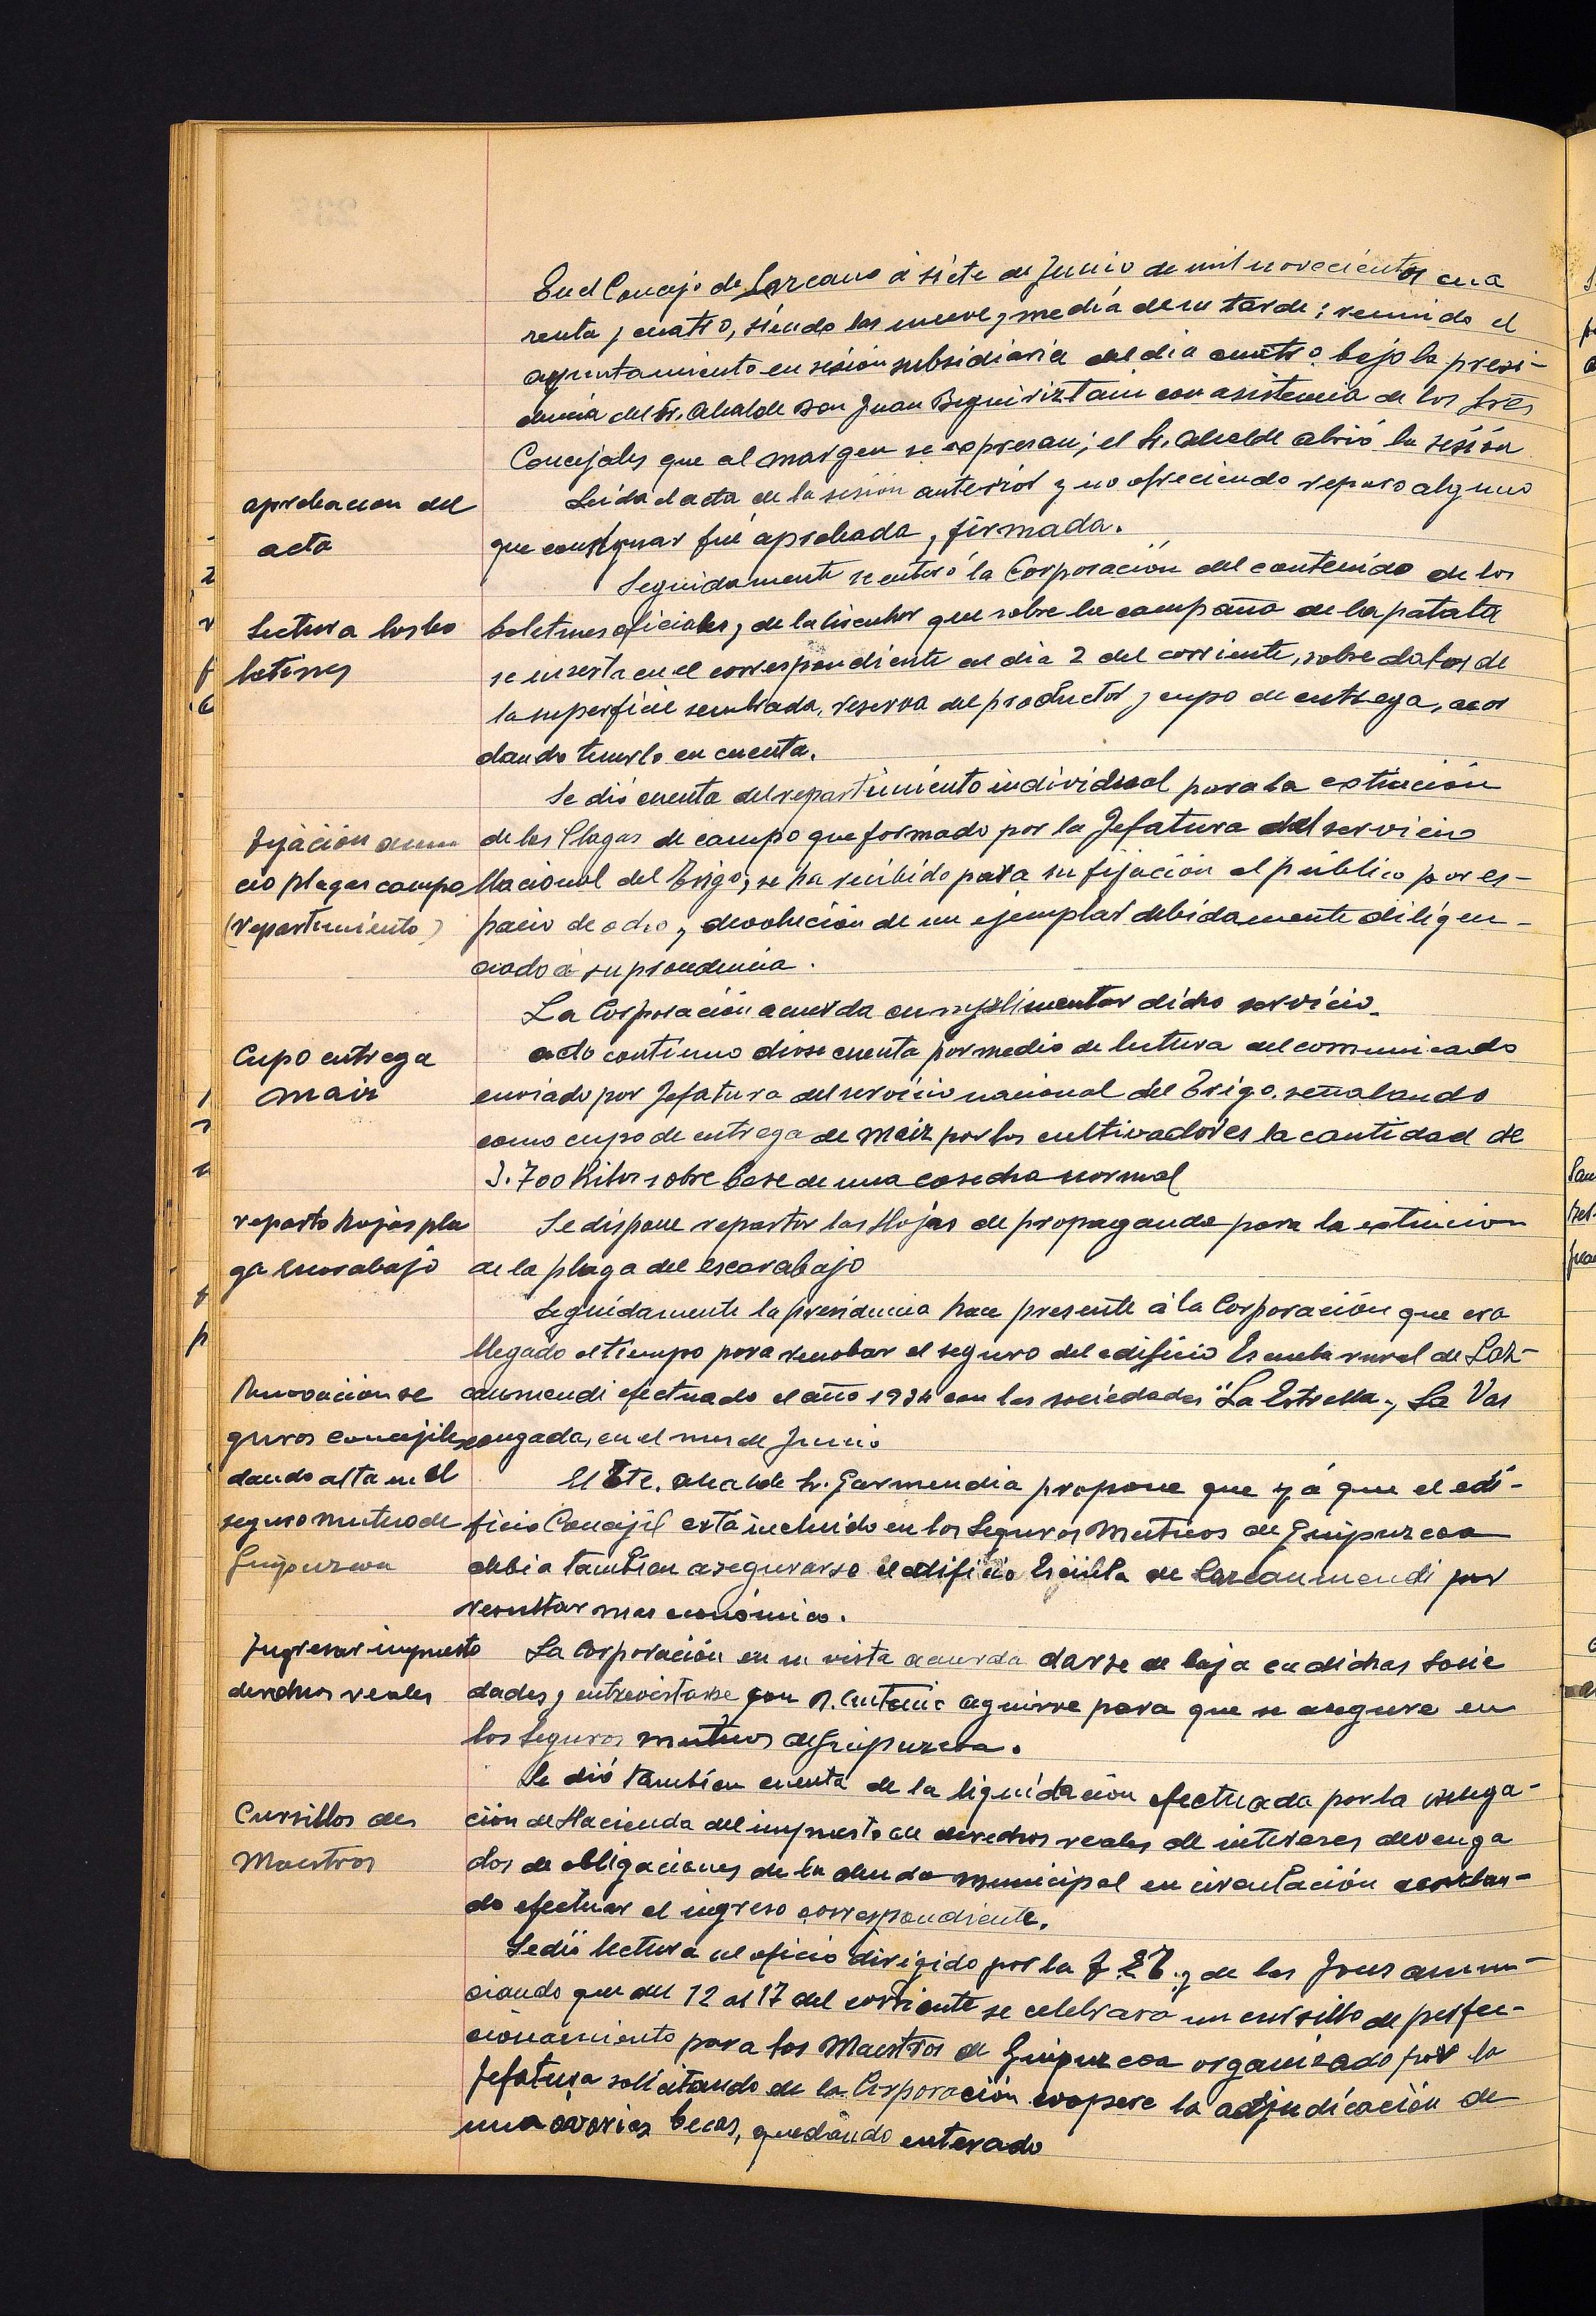 En el Concejo de Lazcano á siete de Junio de mil novecientos cua
renta y cuatro, siendo las nueve y media de su tarde; reunido el
ayuntamiento en sesión subsidiaria del dia cuatro bajo la presi-
dencia del Sr. Alcalde Don Juan Beguiriztain con asistencia de los Sres
Concejales que al margen se expresan; el Sr. Alcalde abrió la sesión
aprobacion del
acta
Leida el acta de la sesión anterior y no ofreciendo reparo alguno
que consignar fué aprobada y firmada.
Seguidamente se enteró la Corporación del contenido de los
Lectura los bo
letines
boletines oficiales y de la circular que sobre la campaña de la patata
se inserta en el correspondiente al dia 2 del corriente, sobre datos de
la superficie sembrada, reserva del productor y cupo de entrega, acor
dando tenerlo en cuenta.
Se dió cuenta del repartimiento individual para la extinción
Fijación anun
cio plagas campo
(repartimiento)
de las Plagas de campo que formado por la Jefatura del servicio
Nacional del Trigo, se ha recibido para su fijación al público por es-
pacio de ocho y devolución de un ejemplar debidamente diligen-
ciado á su procedencia.
La Corporación acuerda cumplimentar dicho servicio.
Cupo entrega
maiz
acto continuo diose cuenta por medio de lectura del comunicado
enviado por Jefatura del servicio nacional del Trigo, señalando
como cupo de entrega de maiz por los cultivadores la cantidad de
3.700 kilos sobre base de una cosecha normal
reparto hojas pla
ga escarabajo
Se dispone repartir las Hojas de propaganda para la extincion
de la plaga del escarabajo
Seguidamente la presidencia hace presente á la Corporación que era
llegado el tiempo para renobar el seguro del edificio Escuela rural de Laz-
Renovacion se
guros concejiles
dando alta en el
seguro mutuo de
Guipuzcoa
caumendi efectuado el año 1934 con las sociedades "La Estrella y La Vas
congada, en el mes de Junio
El Tte. alcalde Sr. Garmendia propone que yá que el edi-
ficio Concejil está incluido en los Seguros Mutuos de Guipuzcoa
debia tambien asegurarse el edificio Escuela de Lazcaumendi por
resultar mas económico.
Ingresar impuesto
derechos reales
La Corporación en su vista acuerda darse de baja en dichas Socie
dades y entrevistarse con D. Antonio Aguirre para que se asegure en
los Seguros mutuos de Guipuzcoa.
Se dió tambien cuenta de la liquidación efectuada por la Delega-
ción de Hacienda del impuesto de derechos reales de intereses devenga
dos de obligaciones de la deuda municipal en circulación acordan-
do efectuar el ingreso correspondiente.
Cursillos de
Maestros
Se dió lectura al oficio dirigido por la F. E. T. y de las Jons anun-
ciando que del 12 al 17 del corriente se celebrara un cursillo de perfec-
cionamiento para los Maestros de Guipuzcoa organizado por la
Jefatura solicitando de la Corporación coopere la adjudicación de
una ó varias becas, quedando enterado